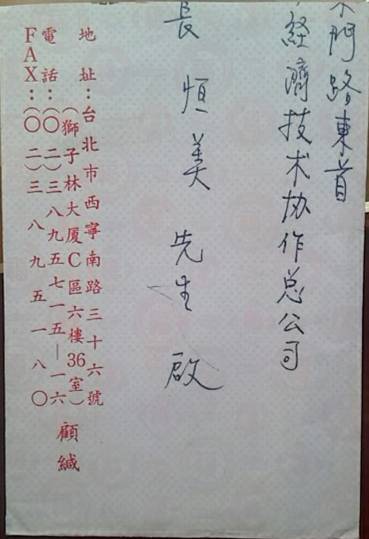 木門路東首
经濟技术协作总公司
長恒美先生啟
地址：台北市西寧南路三十六號
（獅子林大厦C區六樓36室）
電話：（〇二）三八九五七一五｜一六
FAX：（〇二）三八九五一八〇
顧緘